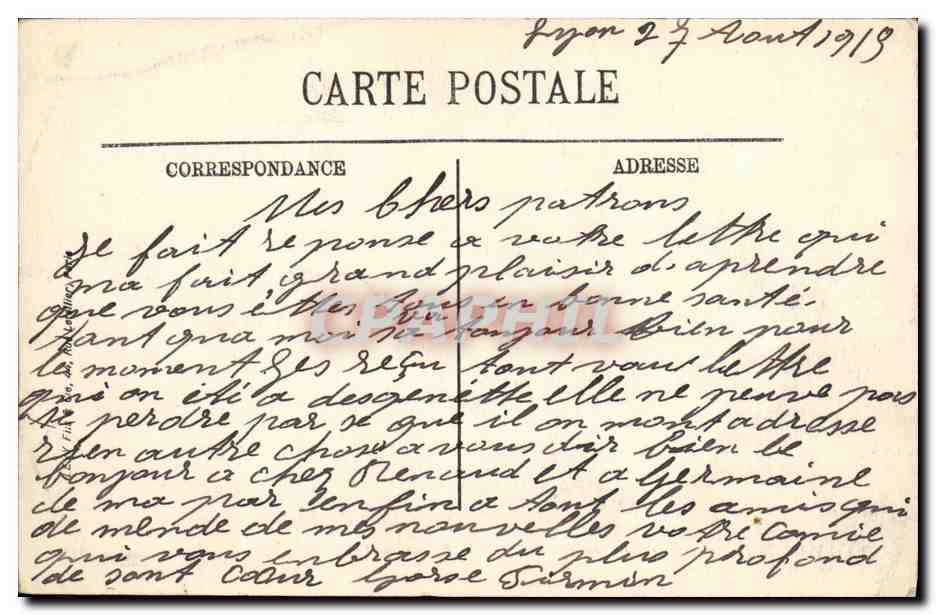 Lyon 27 Aout 1915
CARTE POSTALE
CORRESPONDANCE
ADRESSE
Mes Chers patrons
je fait reponse a votre lettre qui
ma fait grand plaisir d'aprendre
que vous êttes tous en bonne santé.
tant qua moi sa va toujour bien pour
le moment Ges reçu tout vau lettre
qui on été a desgenette elle ne peuve pas
se perdre par se que il on mont adresse
rien autre chose a vous dir bien le
bonjour a chez Renaud et a Germaine
de ma par enfin a tout les amis qui
de mende de mes nouvelles votre Comie
qui vous enbrasse du plus profond
de sont Cœur Firmin